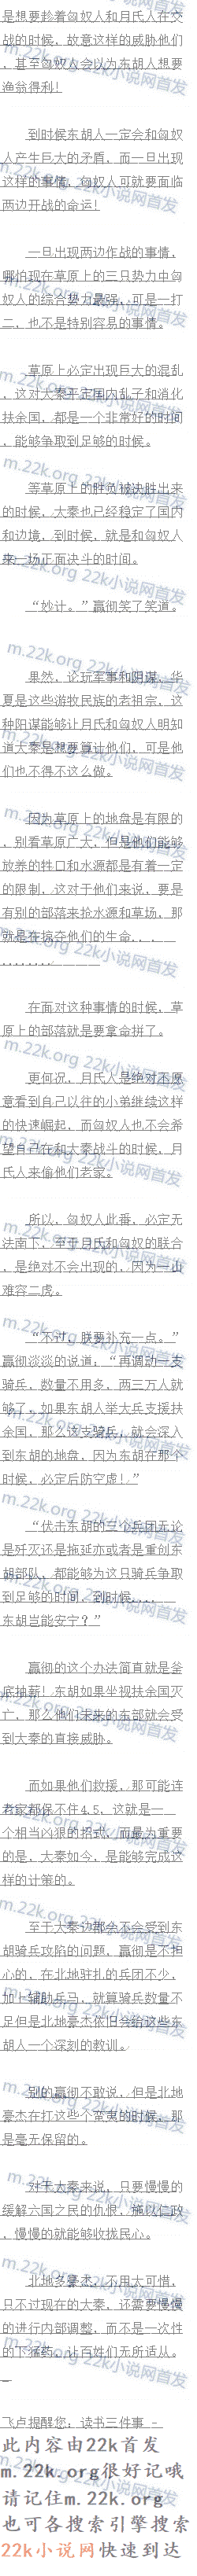 是想要趁着匈奴人和月氏人在交
战的时候，故意这样的威胁他们
，甚至匈奴人会以为东胡人想要
渔翁得利！
到时候东胡人一定会和匈奴
人产生巨大的矛盾，而一旦出现
这样的事情，匈奴人可就要面临
两边开战的命运！
一旦出现两边作战的事情，
哪怕现在草原上的三只势力中匈
奴人的综合势力最强，可是一打
二，也不是特别容易的事情。
草原上必定出现巨大的混乱
，这对大秦平定国内乱子和消化
扶余国，都是一个非常好的时间
，能够争取到足够的时候。
等草原上的胜负被决胜出来
的时候，大秦也已经稳定了国内
和边境，到时候，就是和匈奴人
来一场正面决斗的时间。
“妙计。”嬴彻笑了笑道。
果然，论玩军事和阴谋，华
夏是这些游牧民族的老祖宗，这
种阳谋能够让月氏和匈奴人明知
道大秦是想要算计他们，可是他
们也不得不这么做。
因为草原上的地盘是有限的
，别看草原广大，但是他们能够
放养的牲口和水源都是有着一定
的限制，这对于他们来说，要是
有别的部落来抢水源和草场，那
就是在掠夺他们的生命．．．
．．．．．．．．
在面对这种事情的时候，草
原上的部落就是要拿命拼了。
更何况，月氏人是绝对不愿
意看到自己以往的小弟继续这样
的快速崛起，而匈奴人也不会希
望自己在和大秦战斗的时候，月
氏人来偷他们老家。
所以，匈奴人此番，必定无
法南下，至于月氏和匈奴的联合
，是绝对不会出现的，因为一山
难容二虎。
“不过，朕要补充一点。”
嬴彻淡淡的说道，“再调动一支
骑兵，数量不用多，两三万人就
够了，如果东胡人举大兵支援扶
余国，那么这支骑兵，就会深入
到东胡的地盘，因为东胡在那个
时候，必定后防空虚！”
“伏击东胡的三个兵团无论
是歼灭还是拖延亦或者是重创东
胡部队，都能够为这只骑兵争取
到足够的时间，到时候．．．．
东胡岂能安宁？”
嬴彻的这个办法简直就是釜
底抽薪！东胡如果坐视扶余国灭
亡，那么他们未来的东部就会受
到大秦的直接威胁。
而如果他们救援，那可能连
老家都保不住4.5，这就是一
个相当凶狠的招式，而最为重要
的是，大秦如今，是能够完成这
样的计策的。
至于大秦边郡会不会受到东
胡骑兵攻陷的问题，嬴彻是不担
心的，在北地驻扎的兵团不少，
加上辅助兵马，就算骑兵数量不
足但是北地豪杰依旧会给这些东
胡人一个深刻的教训。
别的嬴彻不敢说，但是北地
豪杰在打这些个蛮夷的时候，那
是毫无保留的。
对于大秦来说，只要慢慢的
缓解六国之民的仇恨，施以仁政
，慢慢的就能够收拢民心。
北地多豪杰，不用大可惜，
只不过现在的大秦，还需要慢慢
的进行内部调整，而不是一次性
的下猛药，让百姓们无所适从。
飞卢提醒您，读书三件事 －
此内容由22k首发
m.22k.org很好记哦
请记住m.22k.org
也可各搜索引擎搜索
22k小说网快速到达